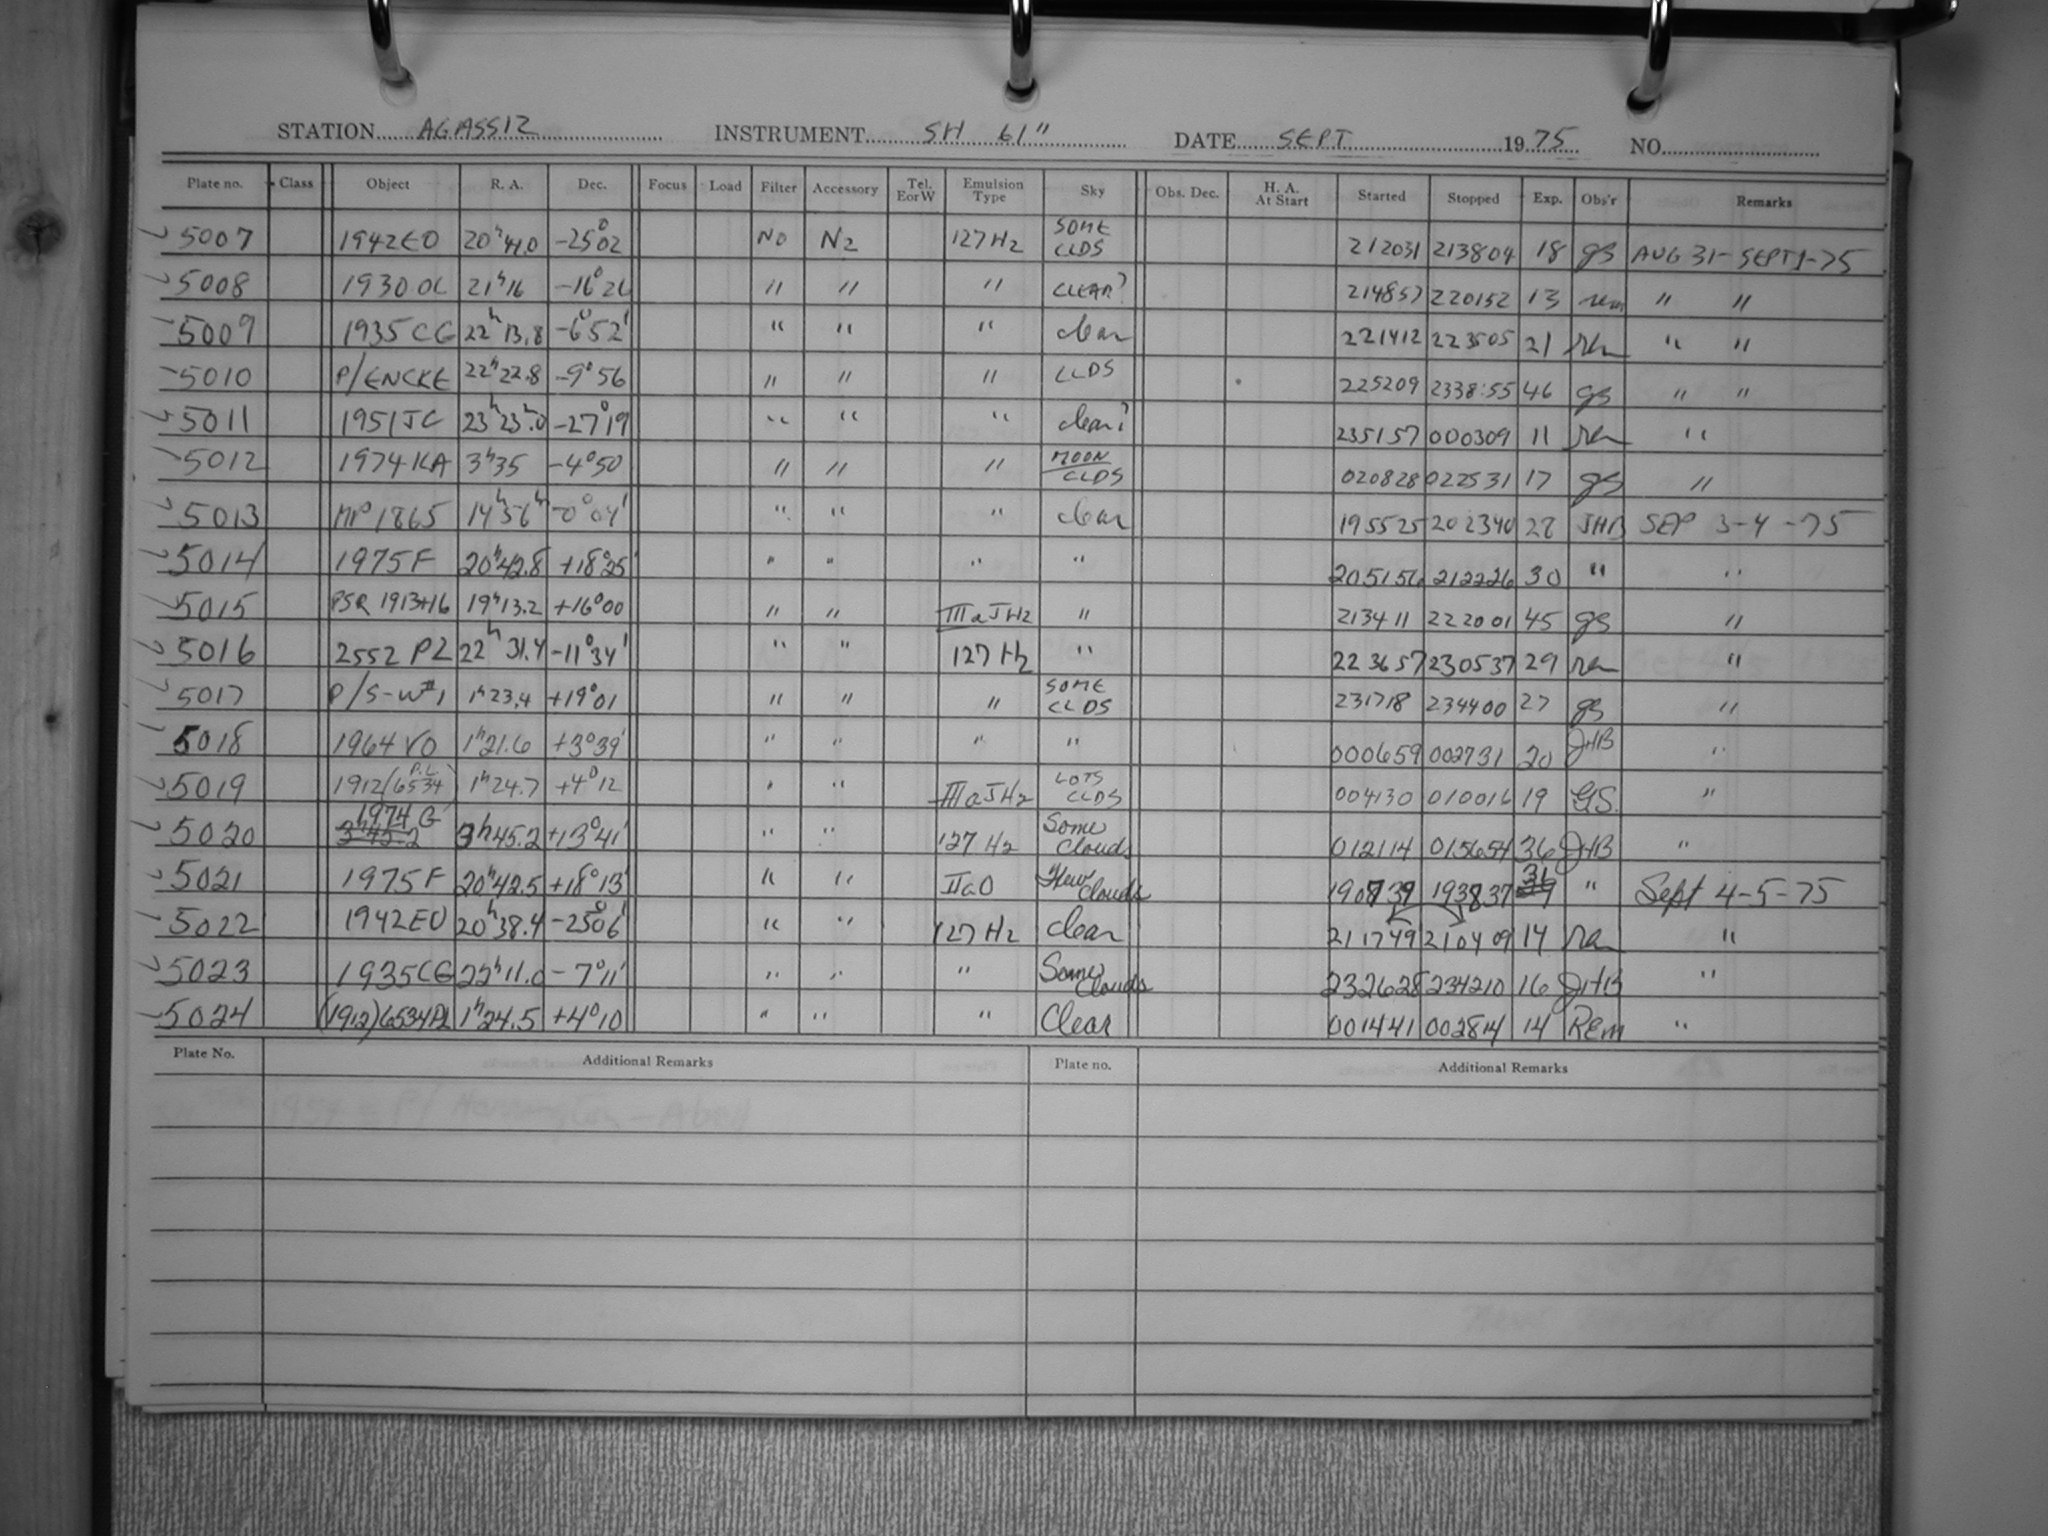 STATION AGASSIZ INSTRUMENT SH 61" DATE SEPT 1975 NO.
Plate no. Class Object R. A. Dec. Focus Load Filter Accessory Tel. EorW Emulsion Type Sky Obs. Dec. H. A. At Start Started Stopped Exp. Obs'r Remarks
5007 1942EO 20h41.0 -25°02 NO N2 127H2 SOME CLDS 212031 213804 18 gs AUG 31-SEPT1-75
5008 1930OL 21h16 -16°26 " " " CLEAR? 214857 220152 13 rem " "
5009 1935CG 22h13.8 -6°52' " " " clear 221412 223505 21 rem " "
5010 P/ENCKE 22h22.8 -9°56 " " " CLDS 225209 2338:55 46 gs " "
5011 1951JC 23h23.0 -27°19 " " " clear? 235157 000309 11 rem "
5012 1974KA 3h35 -4°50 " " " MOON CLDS 020828 022531 17 gs "
5013 MP1865 14h56 -0°04' " " " clear 195525 202340 28 JHB SEP 3-4-75
5014 1975F 20h42.8 +18°25' " " " " 205156 212226 30 " "
5015 PSR 1913+16 19h13.2 +16°00 " " IIIaJH2 " 213411 222001 45 gs "
5016 2552 PL 22h31.4 -11°34' " " 127H2 " 223657 230537 29 rem "
5017 P/S-W#1 1h23.4 +19°01 " " " SOME CLDS 231718 234400 27 gs "
5018 1964VO 1h21.6 +3°39' " " " " 000659 002731 20 JHB "
5019 1912(6534 P.L.) 1h24.7 +4°12 " " IIIaJH2 LOTS CLDS 004130 010016 19 GS. "
5020 3h45.2 1974G 3h45.2 +13°41' " " 127 H2 Some Clouds 012114 015654 36 JHB "
5021 1975F 20h42.5 +18°13' " " IIaO Few Clouds 190739 193837 31 " Sept 4-5-75
5022 1942EO 20h38.4 -25°06' " " 127 H2 Clear 211749 210409 14 rem "
5023 1935CG 22h11.0 -7°11' " " " Some Clouds 232628 234210 16 JHB "
5024 (1912)6534PL 1h24.5 +4°10 " " " Clear 001441 002814 14 REM "
Plate No. Additional Remarks Plate no. Additional Remarks